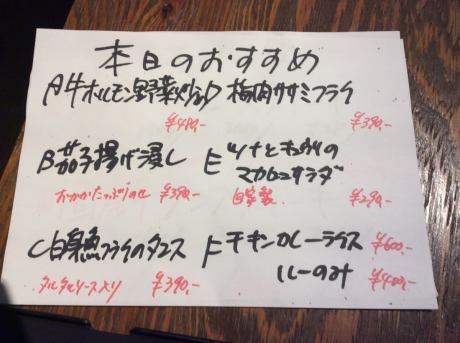 本日のおすすめ
A牛ホルモン野菜メガ
¥480,-
D梅肉ササミフライ
¥390,-
B茄子揚げ浸し
おかかたっぷりのせ ¥390,-
Eツナとキュウリの
マカロニサラダ
自家製 ¥290,-
C白身魚フライのタコス
タルタルソース入り ¥390,-
Fチキンカレーライス ¥600,-
ルーのみ ¥400,-